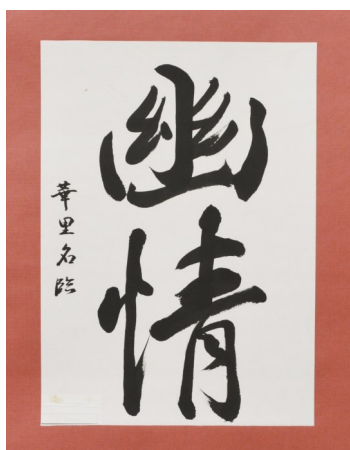 幽情
華里名臨